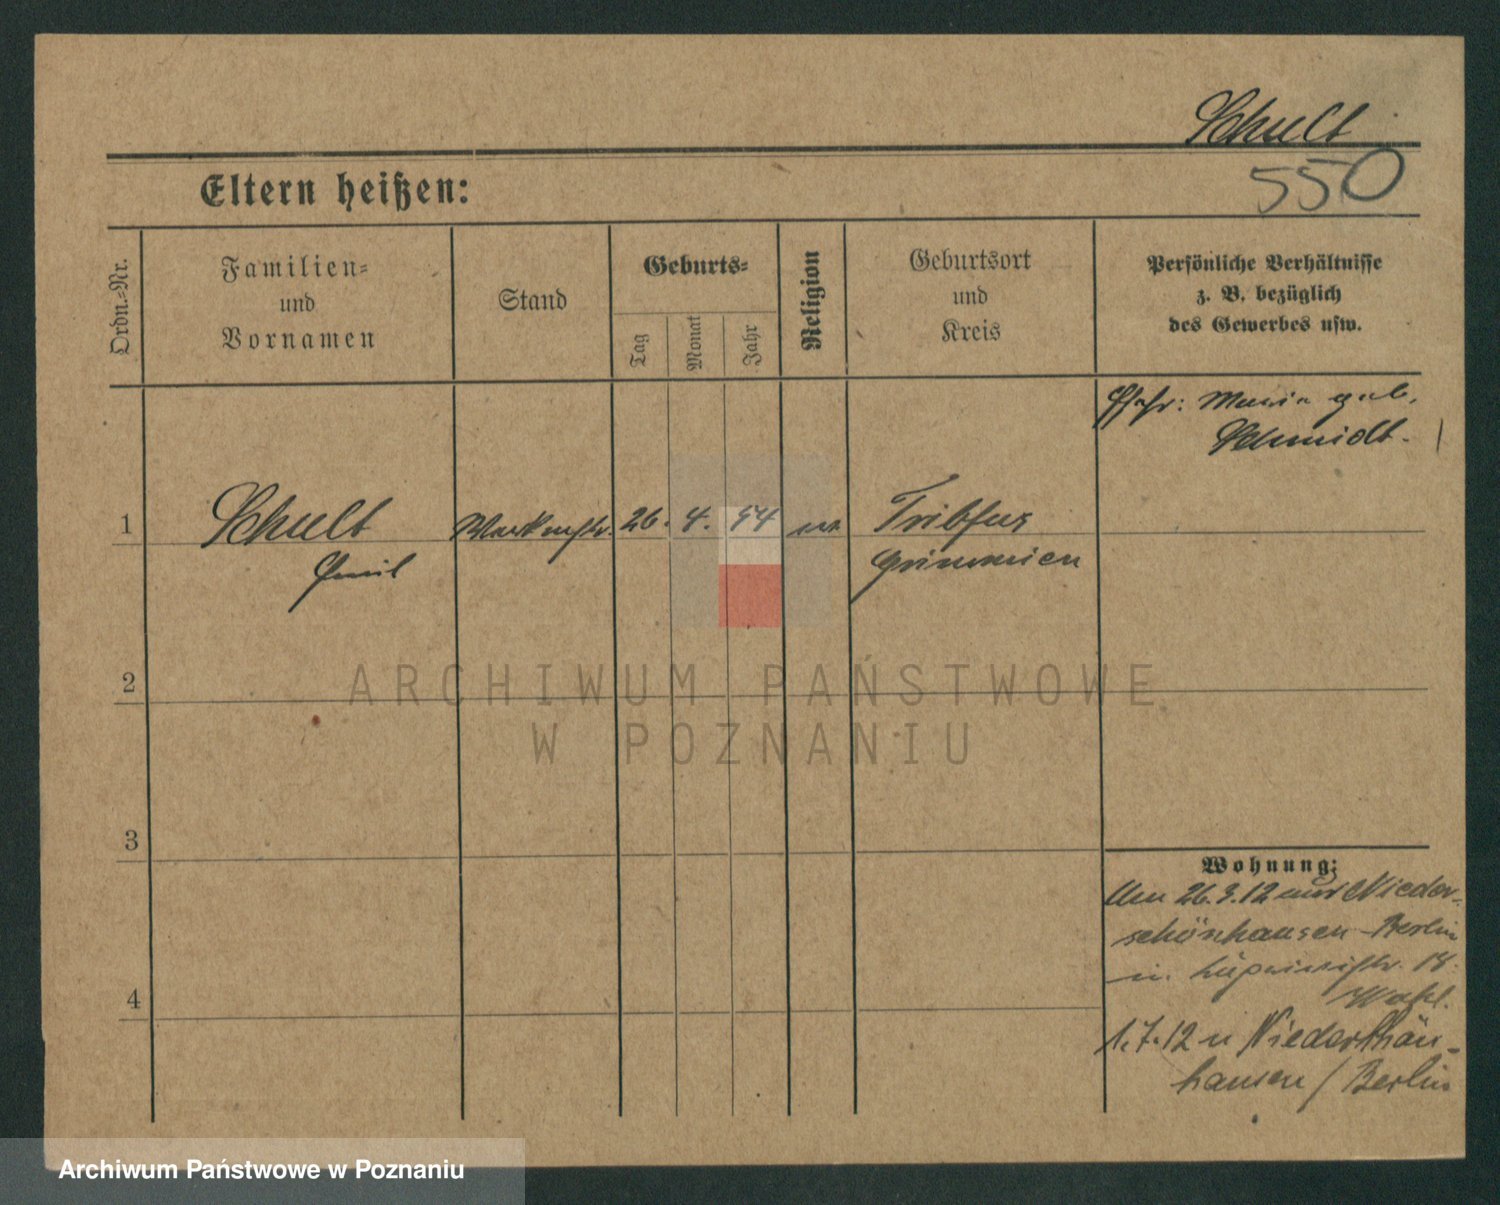 Schult
550
Eltern heißen:
Ordn.-Nr.
Familien-
und
Vornamen
Stand
Geburts-
Tag
Monat
Jahr
Religion
Geburtsort
und
Kreis
Persönliche Verhältnisse
z. B. bezüglich
des Gewerbes usw.
Maria geb.
Schmidt.
1
Schult
Emil
26. 4. 54
ev.
Tribsees
Grimmen
2
3
4
Wohnung:
Am 26.3.12 nach Nieder-
schönhausen-Berlin
18.
1.7.12 n Niederschön-
hausen / Berlin
ARCHIWUM PAŃSTWOWE
W POZNANIU
Archiwum Państwowe w Poznaniu